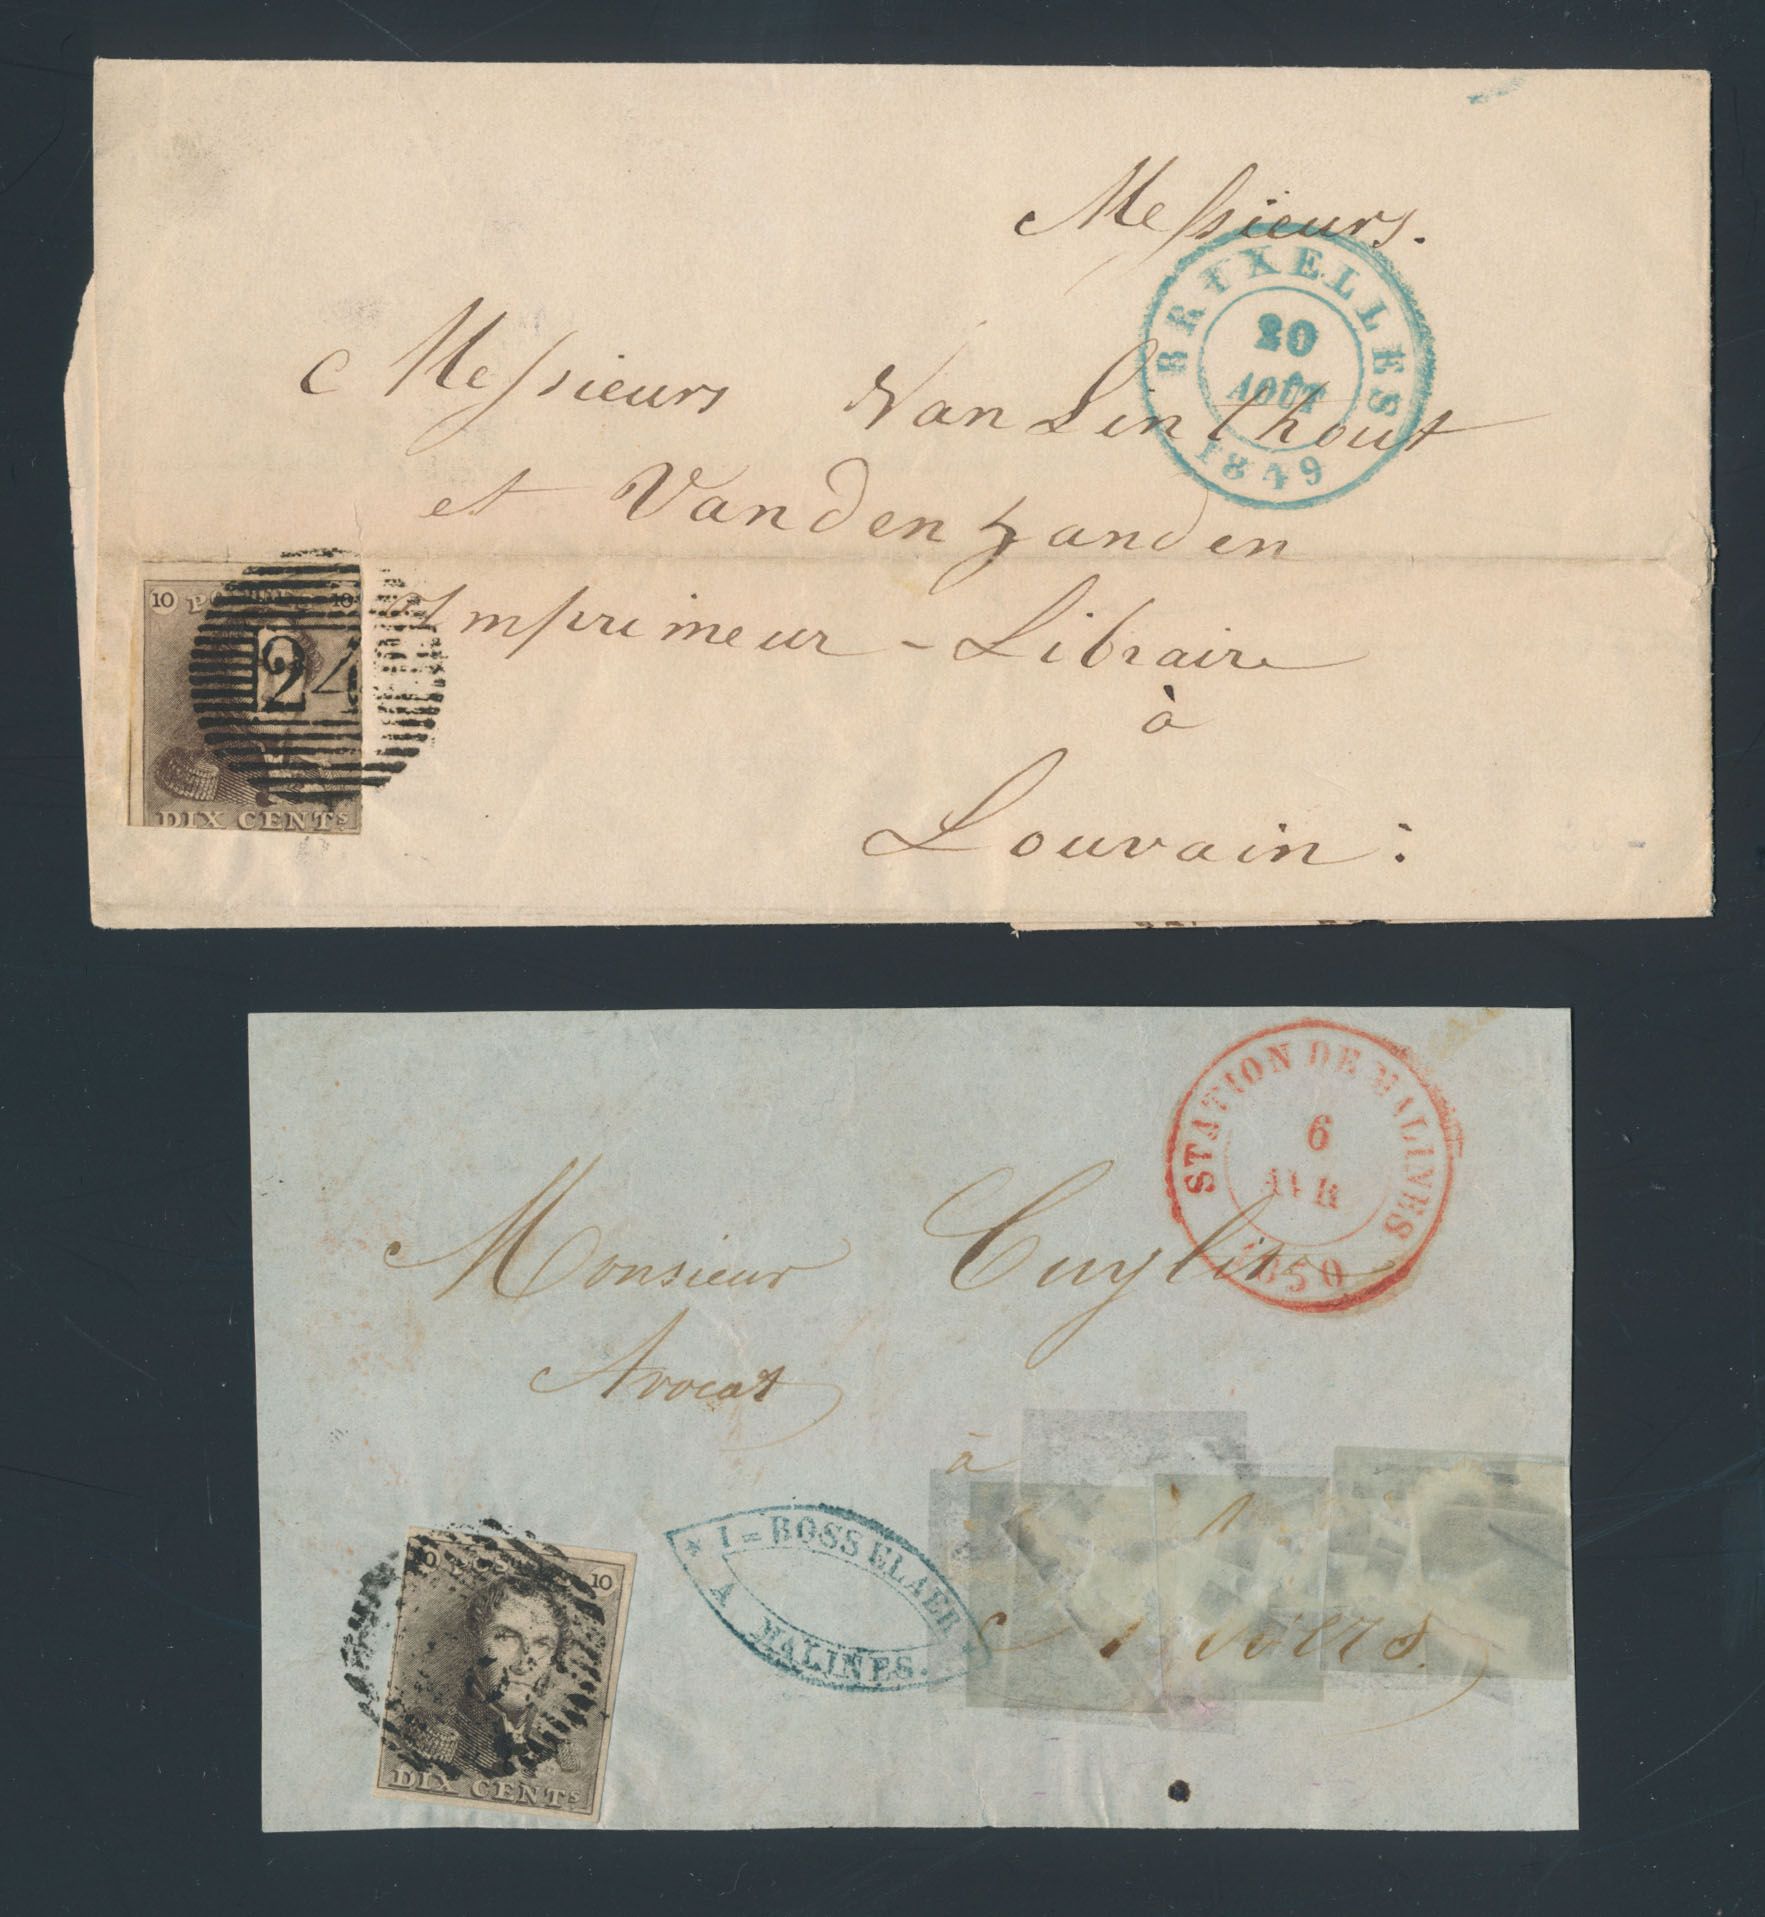 Messieurs.
BRUXELLES
20
AOÛT
1849
Messieurs Van Linthout
et Vanden Zanden
Imprimeur - Libraire
à
Louvain :
10 POSTES 10
24
DIX CENTs.
STATION DE MALINES
6
1850
Monsieur Cuylits
Avocat
à
Anvers.
I = BOSSELAER
A MALINES.
10 POSTES 10
DIX CENTs